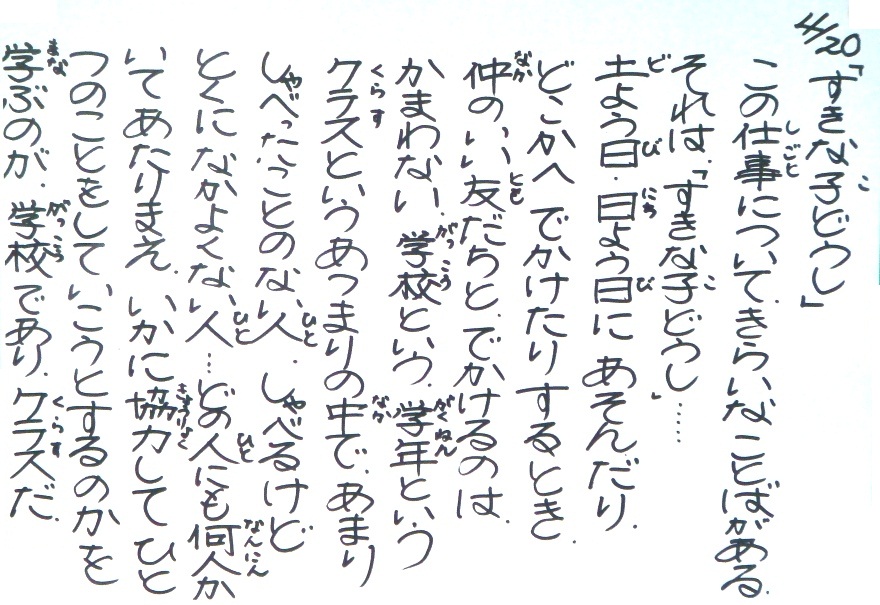 4/20
「すきな子どうし」
この仕事について、きらいなことばがある。
それは、「すきな子どうし」……
土よう日・日よう日に あそんだり、
どこかへ でかけたりするとき、
仲のいい友だちと、でかけるのは、
かまわない。学校という、学年という
クラスというあつまりの中で、あまり
しゃべったことのない人、しゃべるけど
とくになかよくない人…どの人にも何人か
いてあたりまえ、いかに協力して ひと
つのことをして いこうとするのかを
学ぶのが、学校であり、クラスだ。